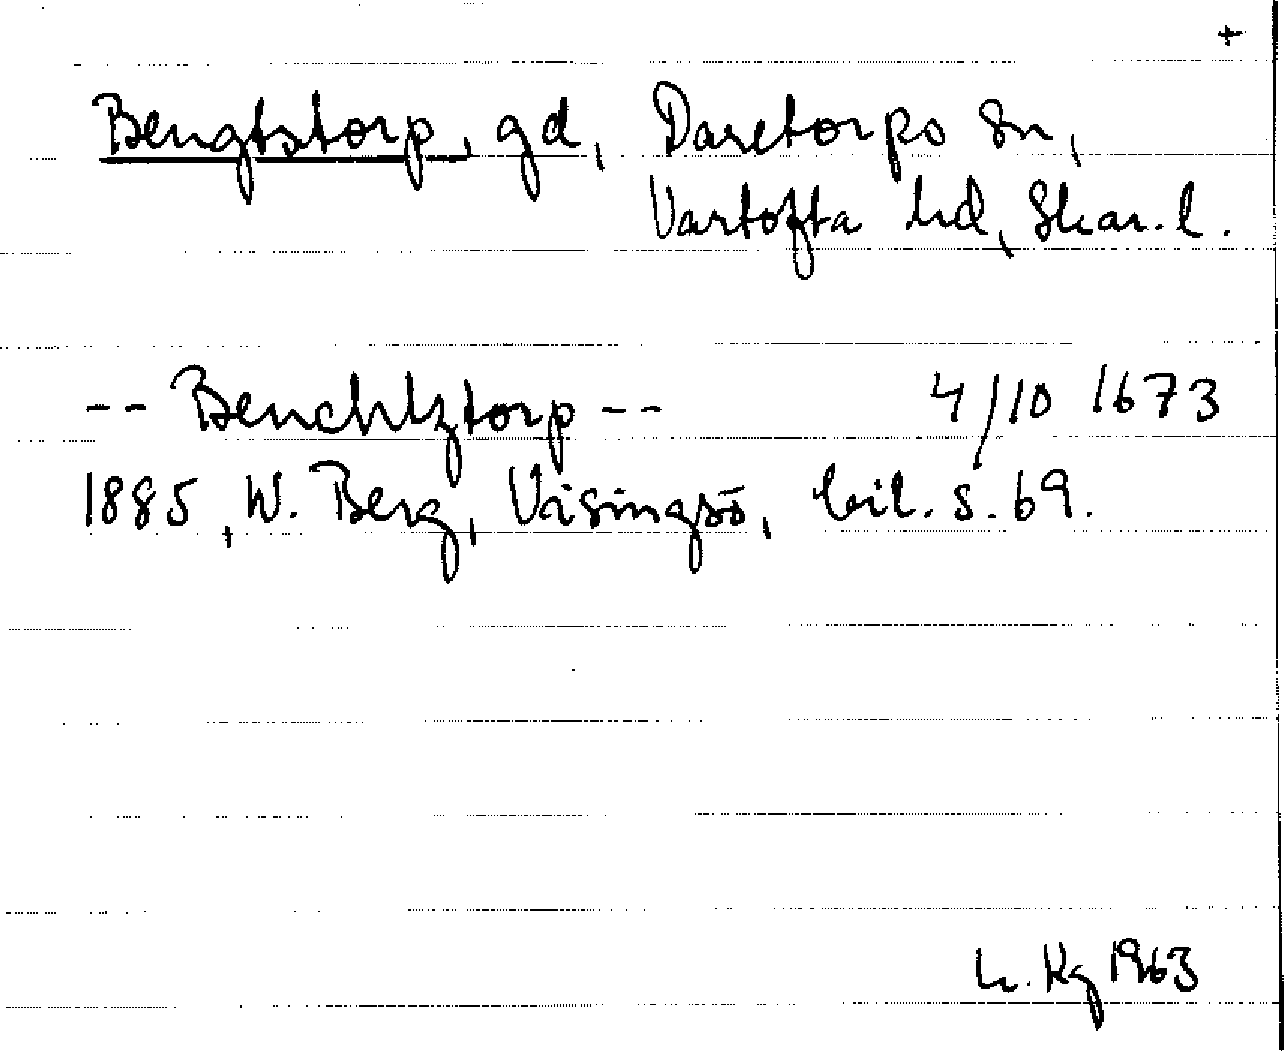 +
Bengtstorp, gd, Daretorps sn,
Vartofta hd, Skar. l.
-- Benchtztorp -- 4/10 1673
1885, W. Berg, Visingsö, bil. s. 69.
L. Kg 1963